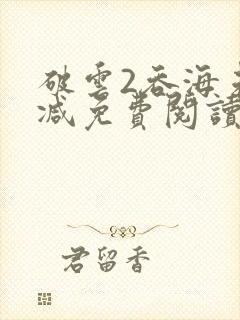 破雲2吞海未
減免費閱讀
君留香